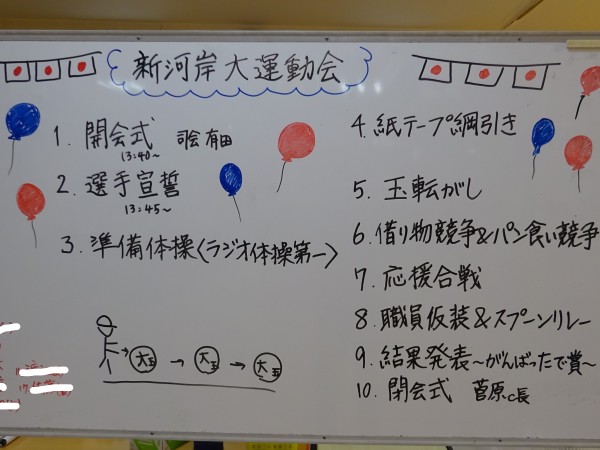 新河岸大運動会
1. 開会式 司会 有田
13:40~
2. 選手宣誓
13:45~
3. 準備体操〈ラジオ体操第一〉
4. 紙テープ綱引き
5. 玉転がし
6. 借り物競争&パン食い競争
7. 応援合戦
8. 職員仮装&スプーンリレー
9. 結果発表~がんばったで賞~
10. 閉会式 菅原c長
大玉 大玉 大玉